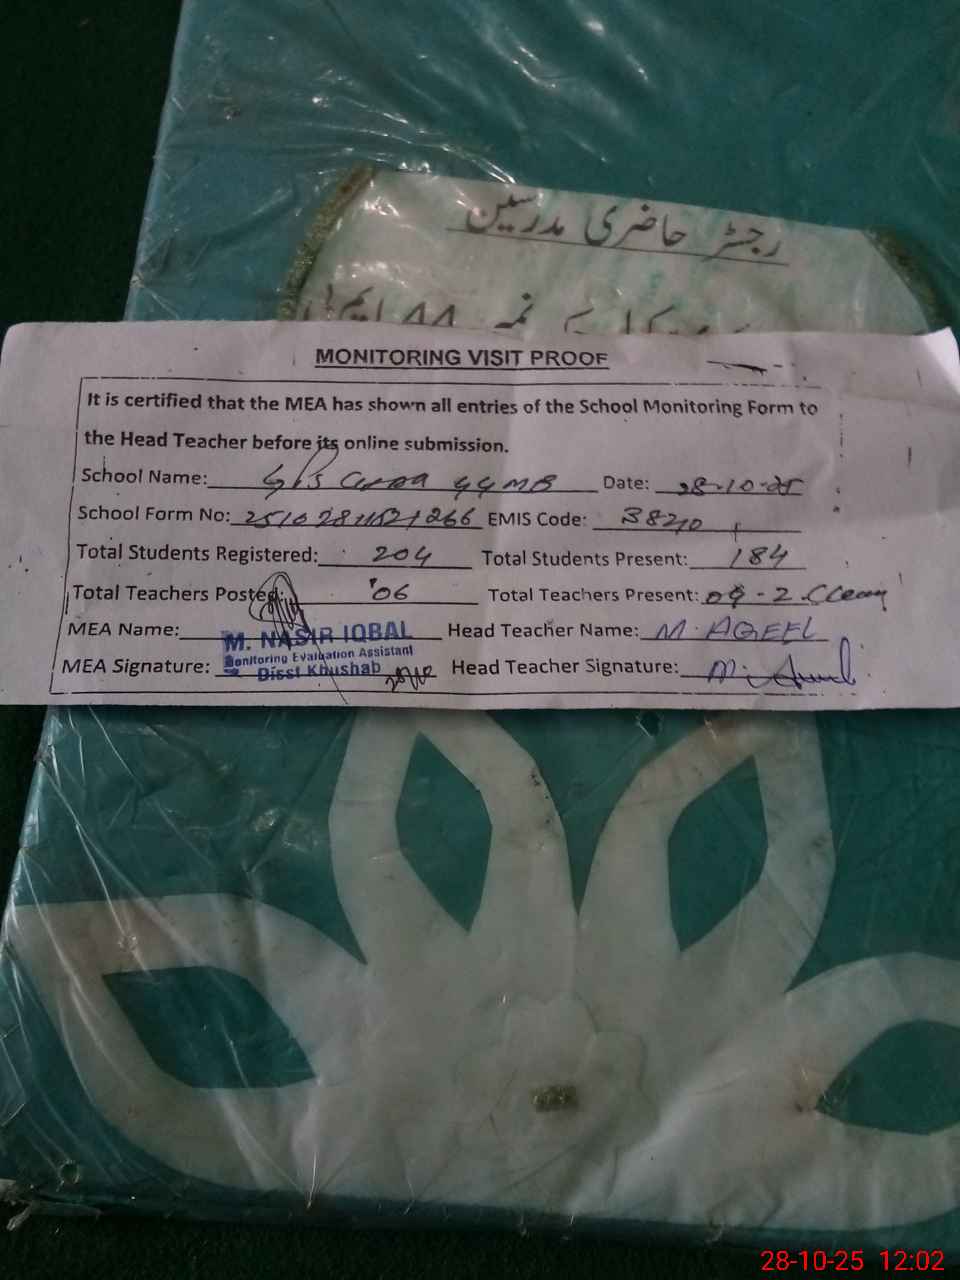 رجسٹر حاضری مدرسین
MONITORING VISIT PROOF
It is certified that the MEA has shown all entries of the School Monitoring Form to
the Head Teacher before its online submission.
School Name: GPS 44 MB Date: 28-10-25
School Form No: EMIS Code:
Total Students Registered: 204 Total Students Present: 184
Total Teachers Posted: 06 Total Teachers Present:
MEA Name: M. NASIR IQBAL Head Teacher Name: M. AQEEL
Monitoring Evaluation Assistant
MEA Signature: Disst Khushab Head Teacher Signature:
28-10-25 12:02